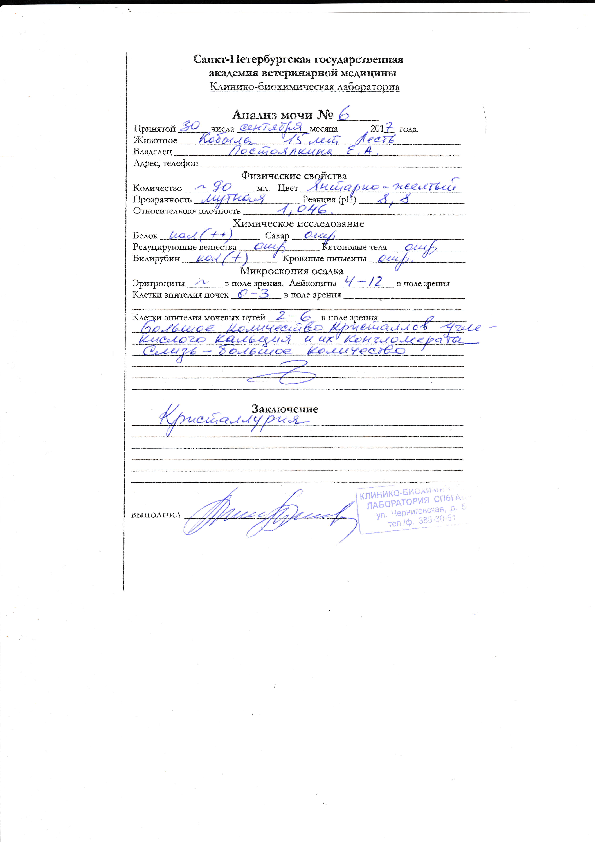 Санкт-Петербургская государственная
академия ветеринарной медицины
Клинико-биохимическая лаборатория
Анализ мочи № 6
Принятой 30 числа сентября месяца 2017 года
Животное Кобыла 15 лет Лесть
Владелец Постоялкина Е А
Адрес, телефон
Физические свойства
Количество ~ 90 мл. Цвет Янтарно-желтый
Прозрачность мутная Реакция (pH) 8,8
Относительная плотность 1,046
Химическое исследование
Белок пол(++) Сахар отр
Редуцирующие вещества отр Кетоновые тела отр
Билирубин пол(+) Кровяные пигменты отр.
Микроскопия осадка
Эритроциты в поле зрения. Лейкоциты 4-12 в поле зрения
Клетки эпителия почек 0-3 в поле зрения
Клетки эпителия мочевых путей 2 6 в поле зрения
Большое количество кристаллов угле-
кислого кальция и их конгломерата
Слизь - большое количество
Заключение
Кристаллурия
выполнил
КЛИНИКО-БИОХИМ
ЛАБОРАТОРИЯ СПбГА
ул. Черниговская, д. 5
тел/ф. 388-30-51